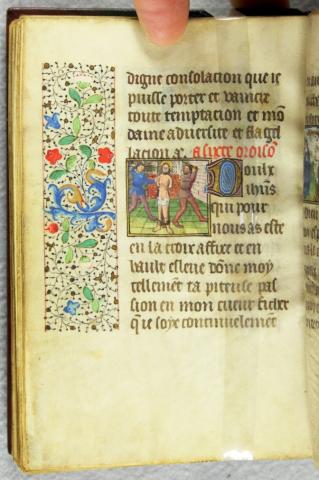 digne consolacion que ie
puisse porter et vaincre
toute temptacion et mo͂
daine aduersite et flagel
lacion. a͂. a sixte oroiso͂
Doulx
ih͂us
qui pour
nous as este
en la croix affixe et en
hault esleue do͂ne moy
tellement ta piteuse pas
sion en mon cueur ficher
q͂ ie soye continuelemе͂t